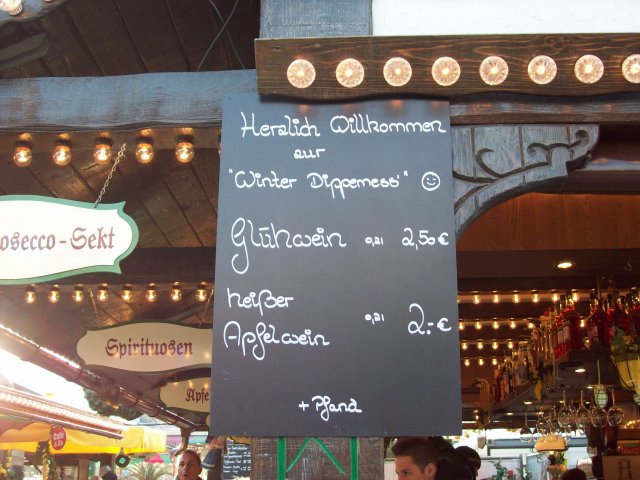 Herzlich Willkommen
zur
"Winter Dippemess" ☺
Glühwein 0,2l 2,50 €
heißer
Apfelwein 0,2l 2.-€
+ Pfand
osecco-Sekt
Spirituosen
Apfe